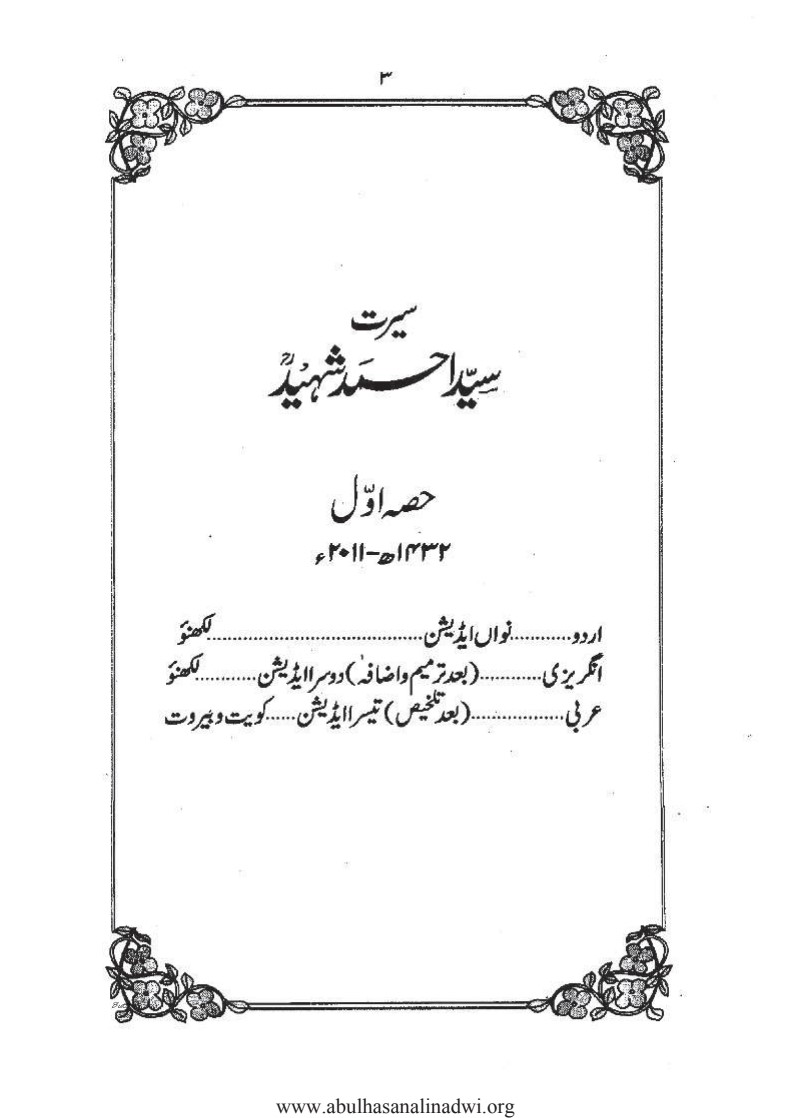 ۳
سیرت
سیّد احمد شہیدؒ
حصہ اوّل
۱۴۳۲ھ–۲۰۱۱ء
اردو............نواں ایڈیشن............................................لکھنؤ
انگریزی............(بعد ترمیم و اضافہ) دوسرا ایڈیشن............لکھنؤ
عربی..................(بعد تلخیص) تیسرا ایڈیشن......کویت و بیروت
www.abulhasanalinadwi.org